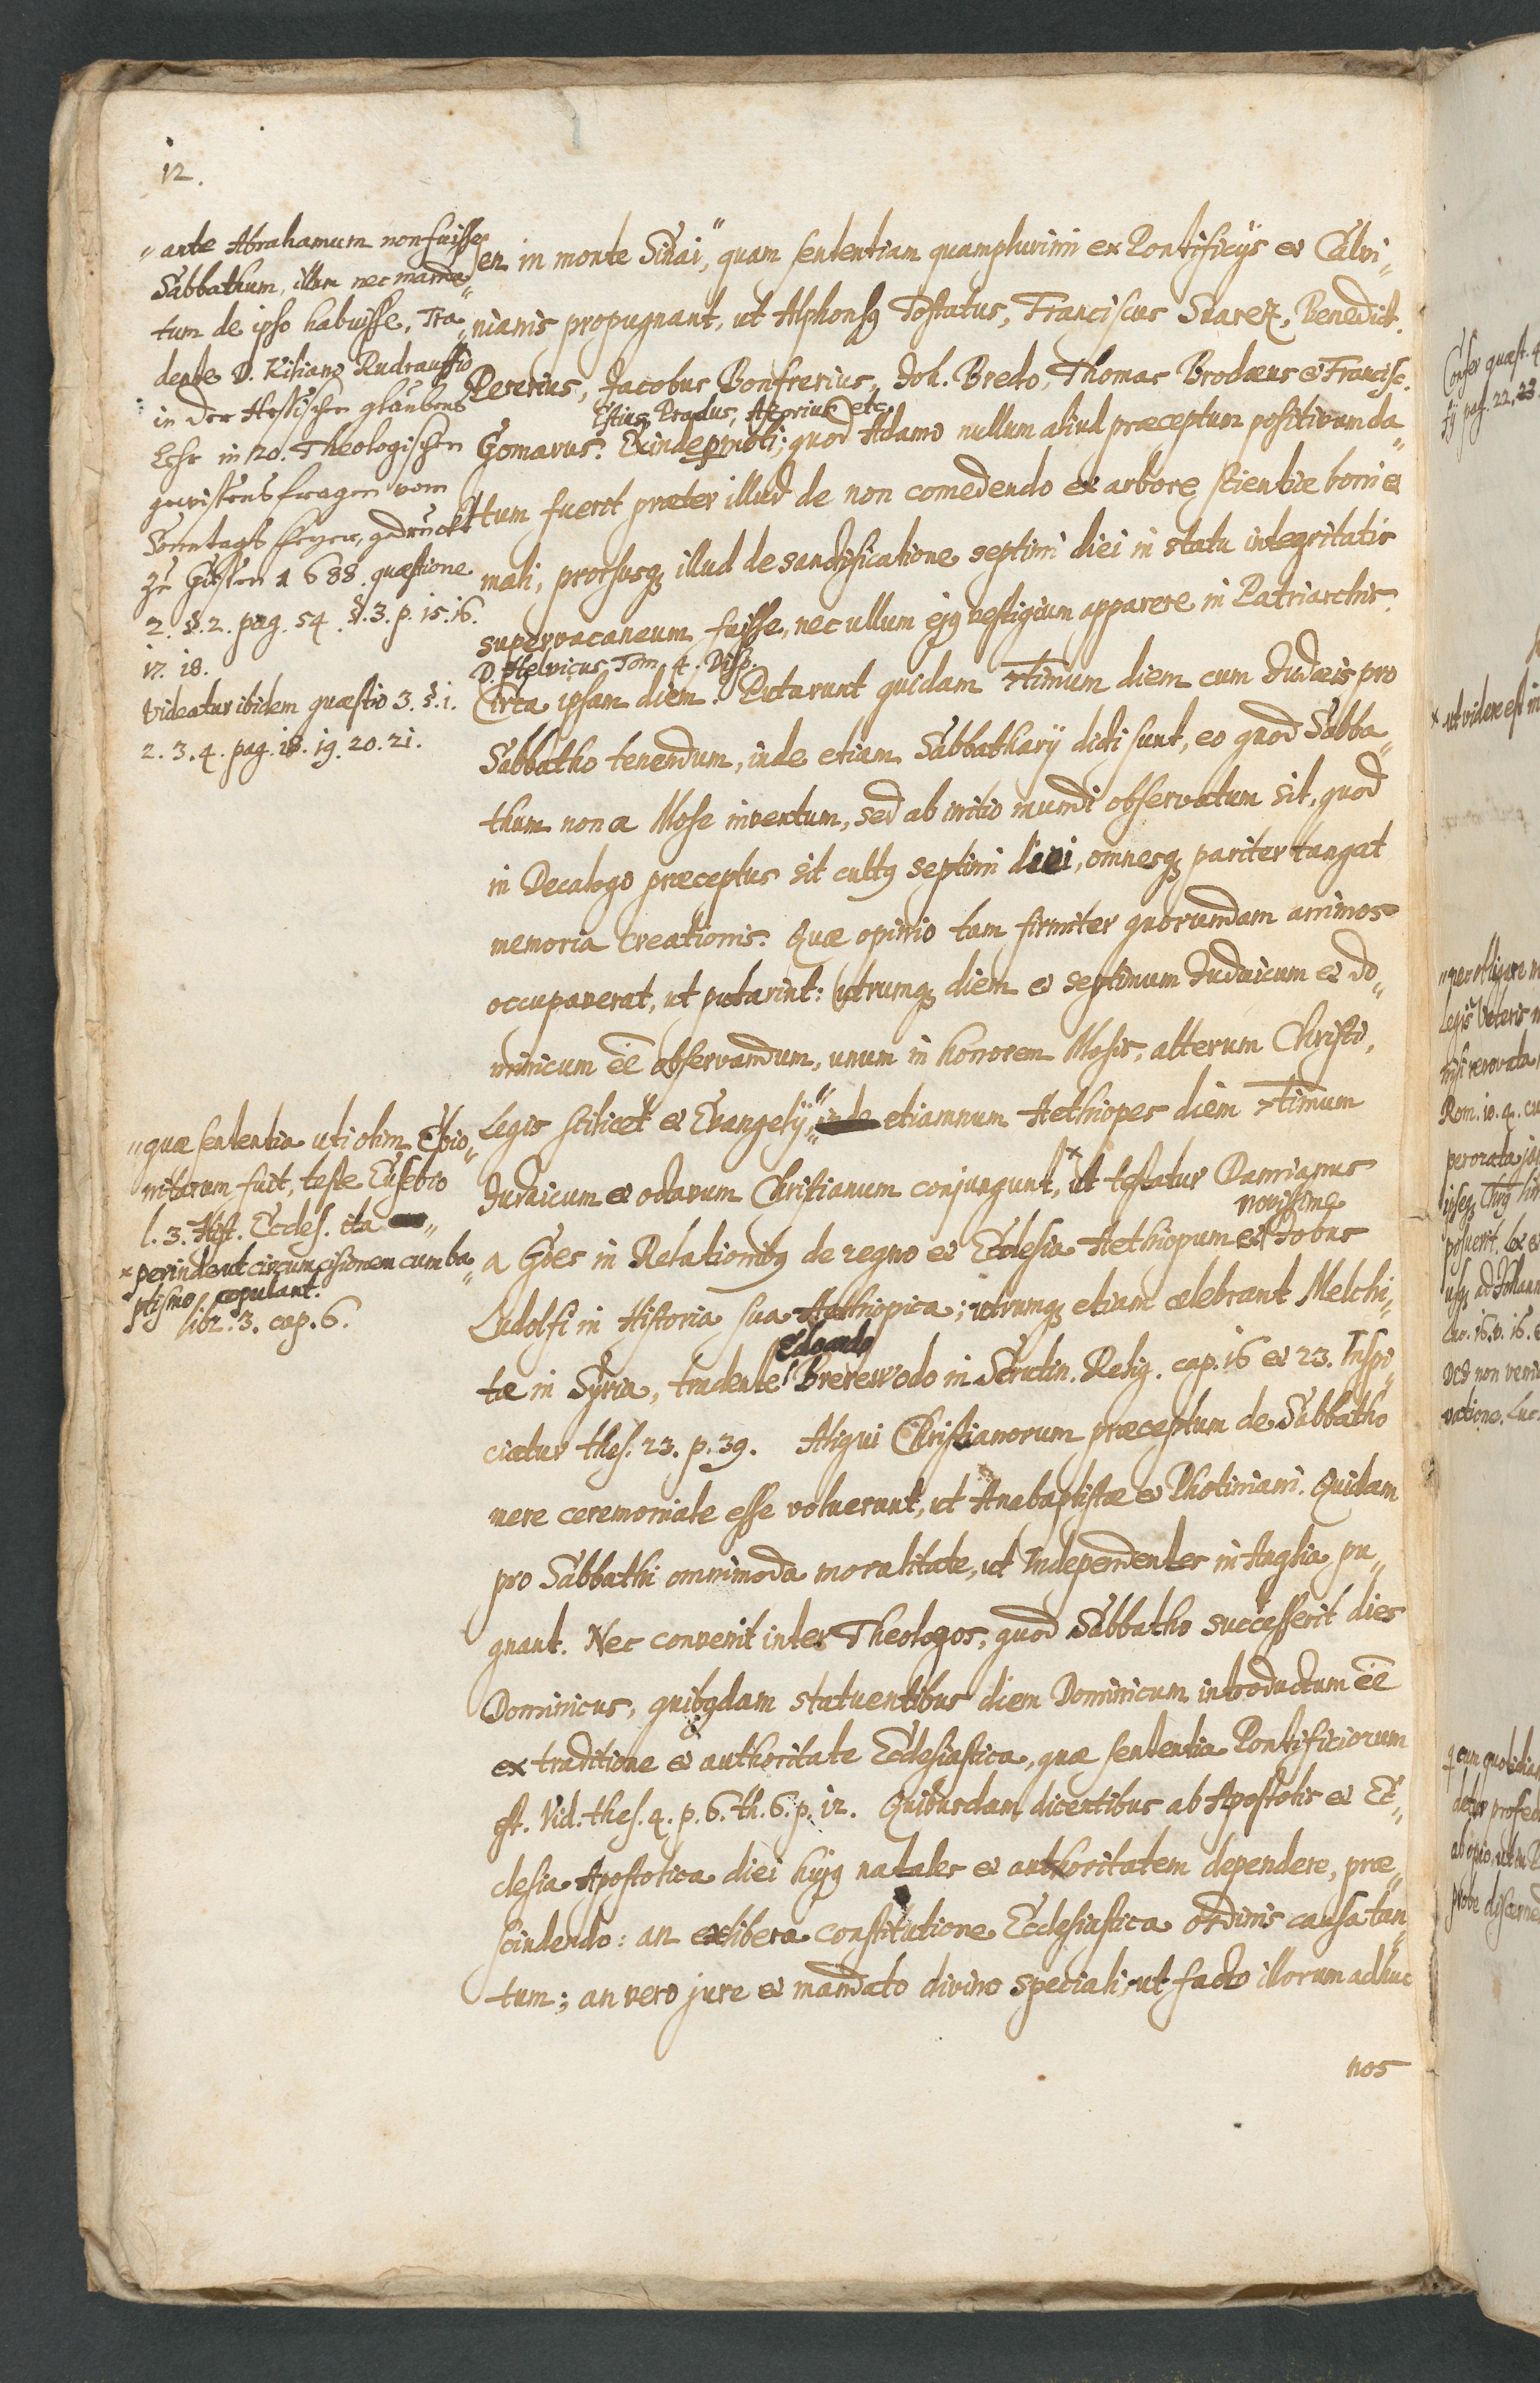 12.
" ante Abrahamum non fuisse
Sabbathum, illum nec manda„
tum de ipso habuisse, Tra„
dente D. Kiliano Rudrauffio
in der Hessischen glaubens
Lehr in 20. Theologischen
gewissens fragen vom
Sonntags feyer, gedruckt
zu Giessen 1688. quæstione
2. §. 2. pag. 54. §. 3. p. 15. 16.
17. 18.
Videatur ibidem quæstio 3. §. 1.
2. 3. 4. pag. 18. 19. 20. 21.
sen in monte Sinai," quam sententiam quamplurimi ex Pontificijs et Calvi„
nianis propugnant, ut Alphonsq Tostatus, Franciscus Suarez, Benedict.
Pererius, Jacobus Bonfrerius, Joh. Bredo, Thomas Brodæus et Francisc.
Estius, Pradus, Azorius etc.
Gomarus. Exinde moti; quod Adamo nullum aliud præceptum positivum da„
tum fuerit præter illud de non comedendo ex arbore scientiæ boni et
mali, prorsusq illud de sanctificatione septimi diei in statu integritatis
supervacaneum fuisse, nec ullum ejq vestigium apparere in Patriarchis.
D. Helvicus Tom. 4. Disp.
Circa ipsam diem. Putarunt quidam 7timum diem cum Judæis pro
Sabbatho tenendum, inde etiam Sabbatharij dicti sunt, eo quod Sabba„
thum non a Mose inventum, sed ab initio mundi observatum sit, quod
in Decalogo præceptus sit cultq septimi diei, omnesq pariter tangat
memoria creationis. Quæ opinio tam firmiter quorundam animos
occupaverat, ut putarint: utrumq diem et septimum Judaicum et do„
minicum ēē observandum, unum in honorem Mosis, alterum Christi,
Legis scilicet et Evangelij," inde etiamnum Aethiopes diem 7timum
Judaicum et octavum Christianum conjungunt, x ut testatur Damianus
novissime
a Goes in Relationibq de regno et Ecclesia Aethiopum et Jobus
Ludolfi in Historia sua Aethiopica; utrumq etiam celebrant Melchi„
Edoardo
tæ in Syria, tradente Brerewodo in Scrutin. Relig. cap. 16 et 23. Inspi„
ciatur thes. 23. p. 39. Aliqui Christianorum præceptum de Sabbatho
mere ceremoniale esse voluerunt, ut Anabaptistæ et Photiniani. Quidam
pro Sabbathi omnimoda moralitate, ut Independentes in Anglia pu„
gnant. Nec convenit inter Theologos, quod Sabbatho successerit dies
Dominicus, quibqdam statuentibus diem Dominicum introductum ēē
ex traditione et authoritate Ecclesiastica, quæ sententia Pontificiorum
est. Vid. thes. 4. p. 6. th. 6. p. 12. Quibusdam dicentibus ab Apostolis et Ec„
clesia Apostolica diei hujq natales et authoritatem dependere, præ„
scindendo: an ex libera constitutione Ecclesiastica ordinis causa tan„
tum; an vero jure et mandato divino speciali, ut facto illorum adhuc
nos
" quæ sententia uti olim Ebio„
nitarum fuit, teste Eusebio
l. 3. Hist. Eccles. ita
x perinde ut circumcisionem cum ba„
ptismo copulant.
libr. 3. cap. 6.
Confer quæst. 4
pag. 22, 23.
x ut videre est in
Legis Veteris
Rom. 10. 4.
Luc. 16. v. 16.